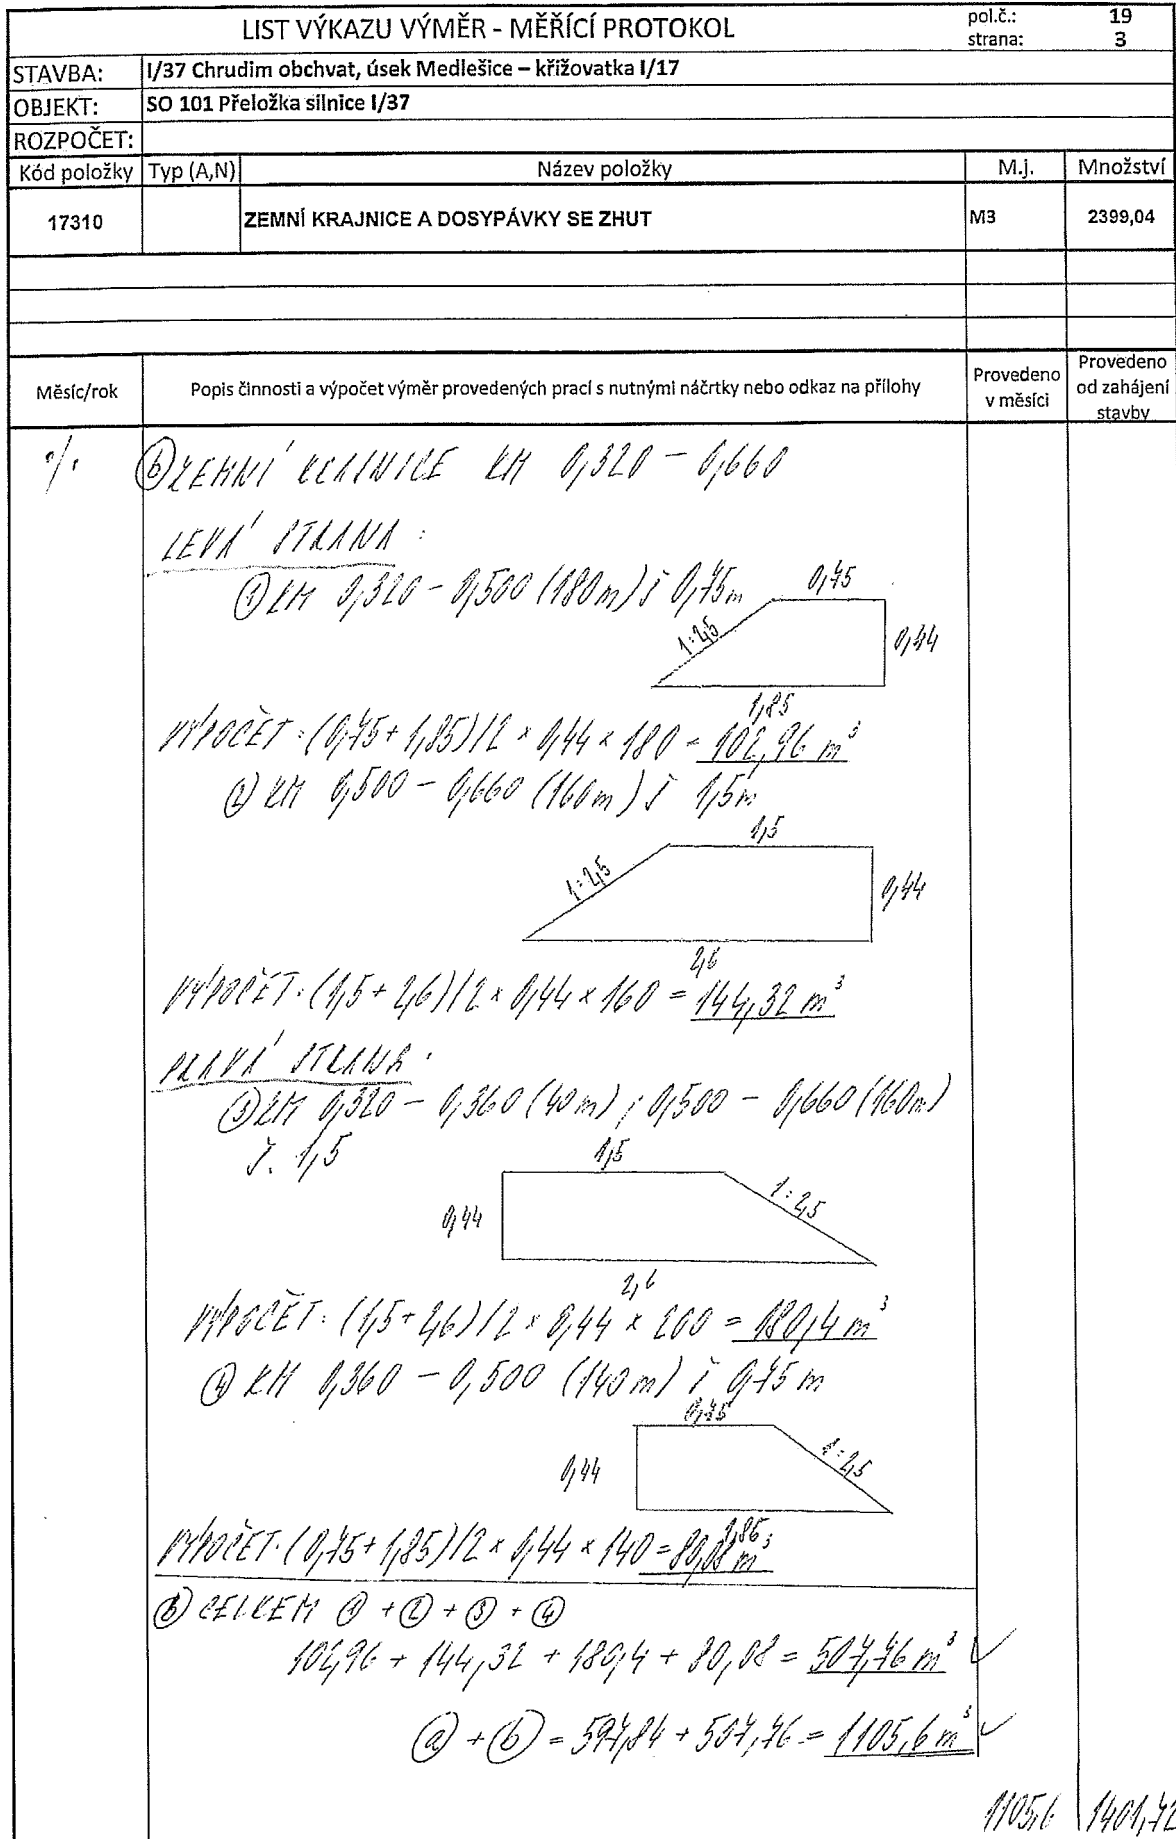 LIST VÝKAZU VÝMĚR - MĚŘÍCÍ PROTOKOL
pol.č.: 19
strana: 3
STAVBA: I/37 Chrudim obchvat, úsek Medlešice – křižovatka I/17
OBJEKT: SO 101 Přeložka silnice I/37
ROZPOČET:
Kód položky Typ (A,N) Název položky M.j. Množství
17310 ZEMNÍ KRAJNICE A DOSYPÁVKY SE ZHUT M3 2399,04
Měsíc/rok Popis činnosti a výpočet výměr provedených prací s nutnými náčrtky nebo odkaz na přílohy Provedeno v měsíci Provedeno od zahájení stavby
·/· ⓑ ZEMNÍ KRAJNICE KM 0,320 - 0,660
LEVÁ STRANA:
① KM 0,320 - 0,500 (180m) š 0,75m
0,75
1:2,5
0,44
1,85
VÝPOČET: (0,75+1,85)/2 × 0,44 × 180 = 102,96 m³
② KM 0,500 - 0,660 (160m) š 1,5m
1,5
1:2,5
0,44
2,6
VÝPOČET: (1,5+2,6)/2 × 0,44 × 160 = 144,32 m³
PRAVÁ STRANA:
③ KM 0,320 - 0,360 (40m); 0,500 - 0,660 (160m)
š. 1,5
1,5
1:2,5
0,44
2,6
VÝPOČET: (1,5+2,6)/2 × 0,44 × 200 = 180,4 m³
④ KM 0,360 - 0,500 (140m) š 0,75 m
0,75
1:2,5
0,44
1,85
VÝPOČET: (0,75+1,85)/2 × 0,44 × 140 = 80,08 m³
ⓑ CELKEM ① + ② + ③ + ④
102,96 + 144,32 + 180,4 + 80,08 = 507,76 m³ ✓
ⓐ + ⓑ = 597,84 + 507,76 = 1105,6 m³ ✓
1105,6 1401,72